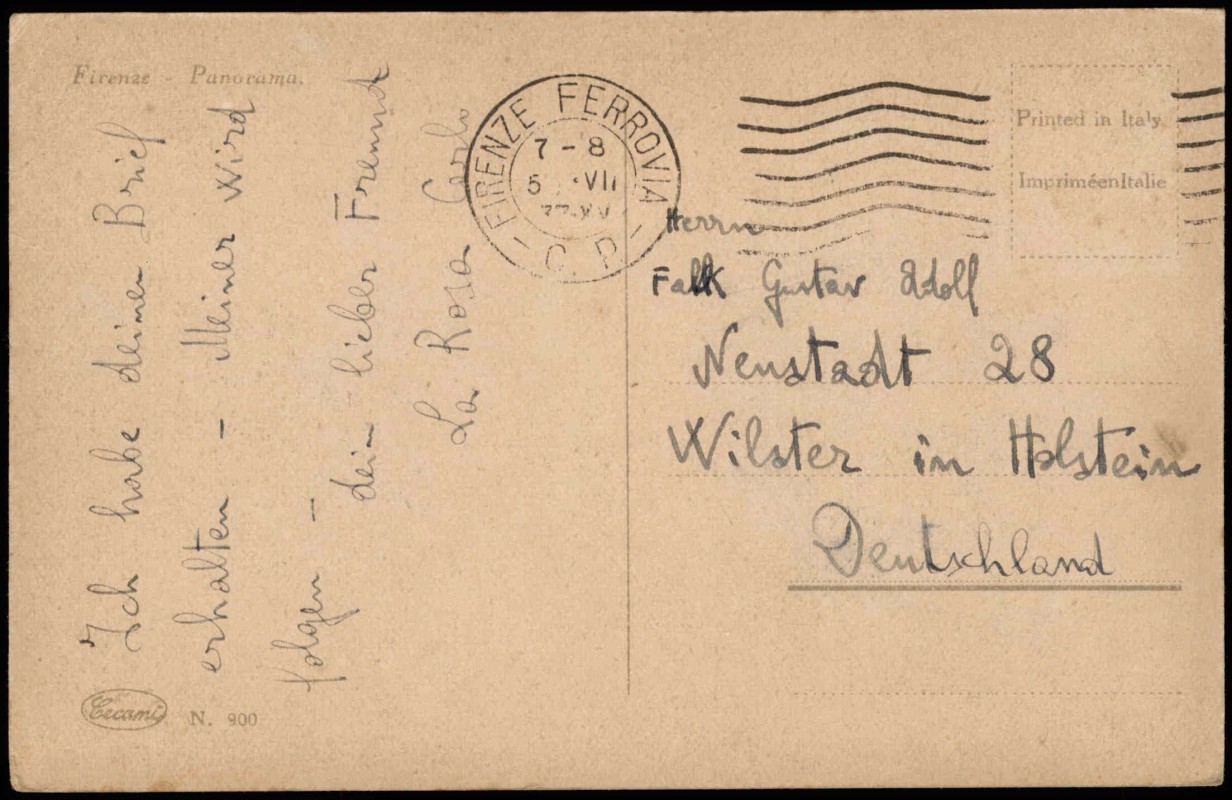 Firenze - Panorama.
Ich habe deinen Brief
erhalten - Meiner wird
folgen -
dein lieber Freund
La Rosa Carlo
Cecami
N. 900
FIRENZE FERROVIA
7 - 8
5 VII
C. P.
Printed in Italy
ImpriméenItalie
Herrn
Falk Gustav Adolf
Neustadt 28
Wilster in Holstein
Deutschland